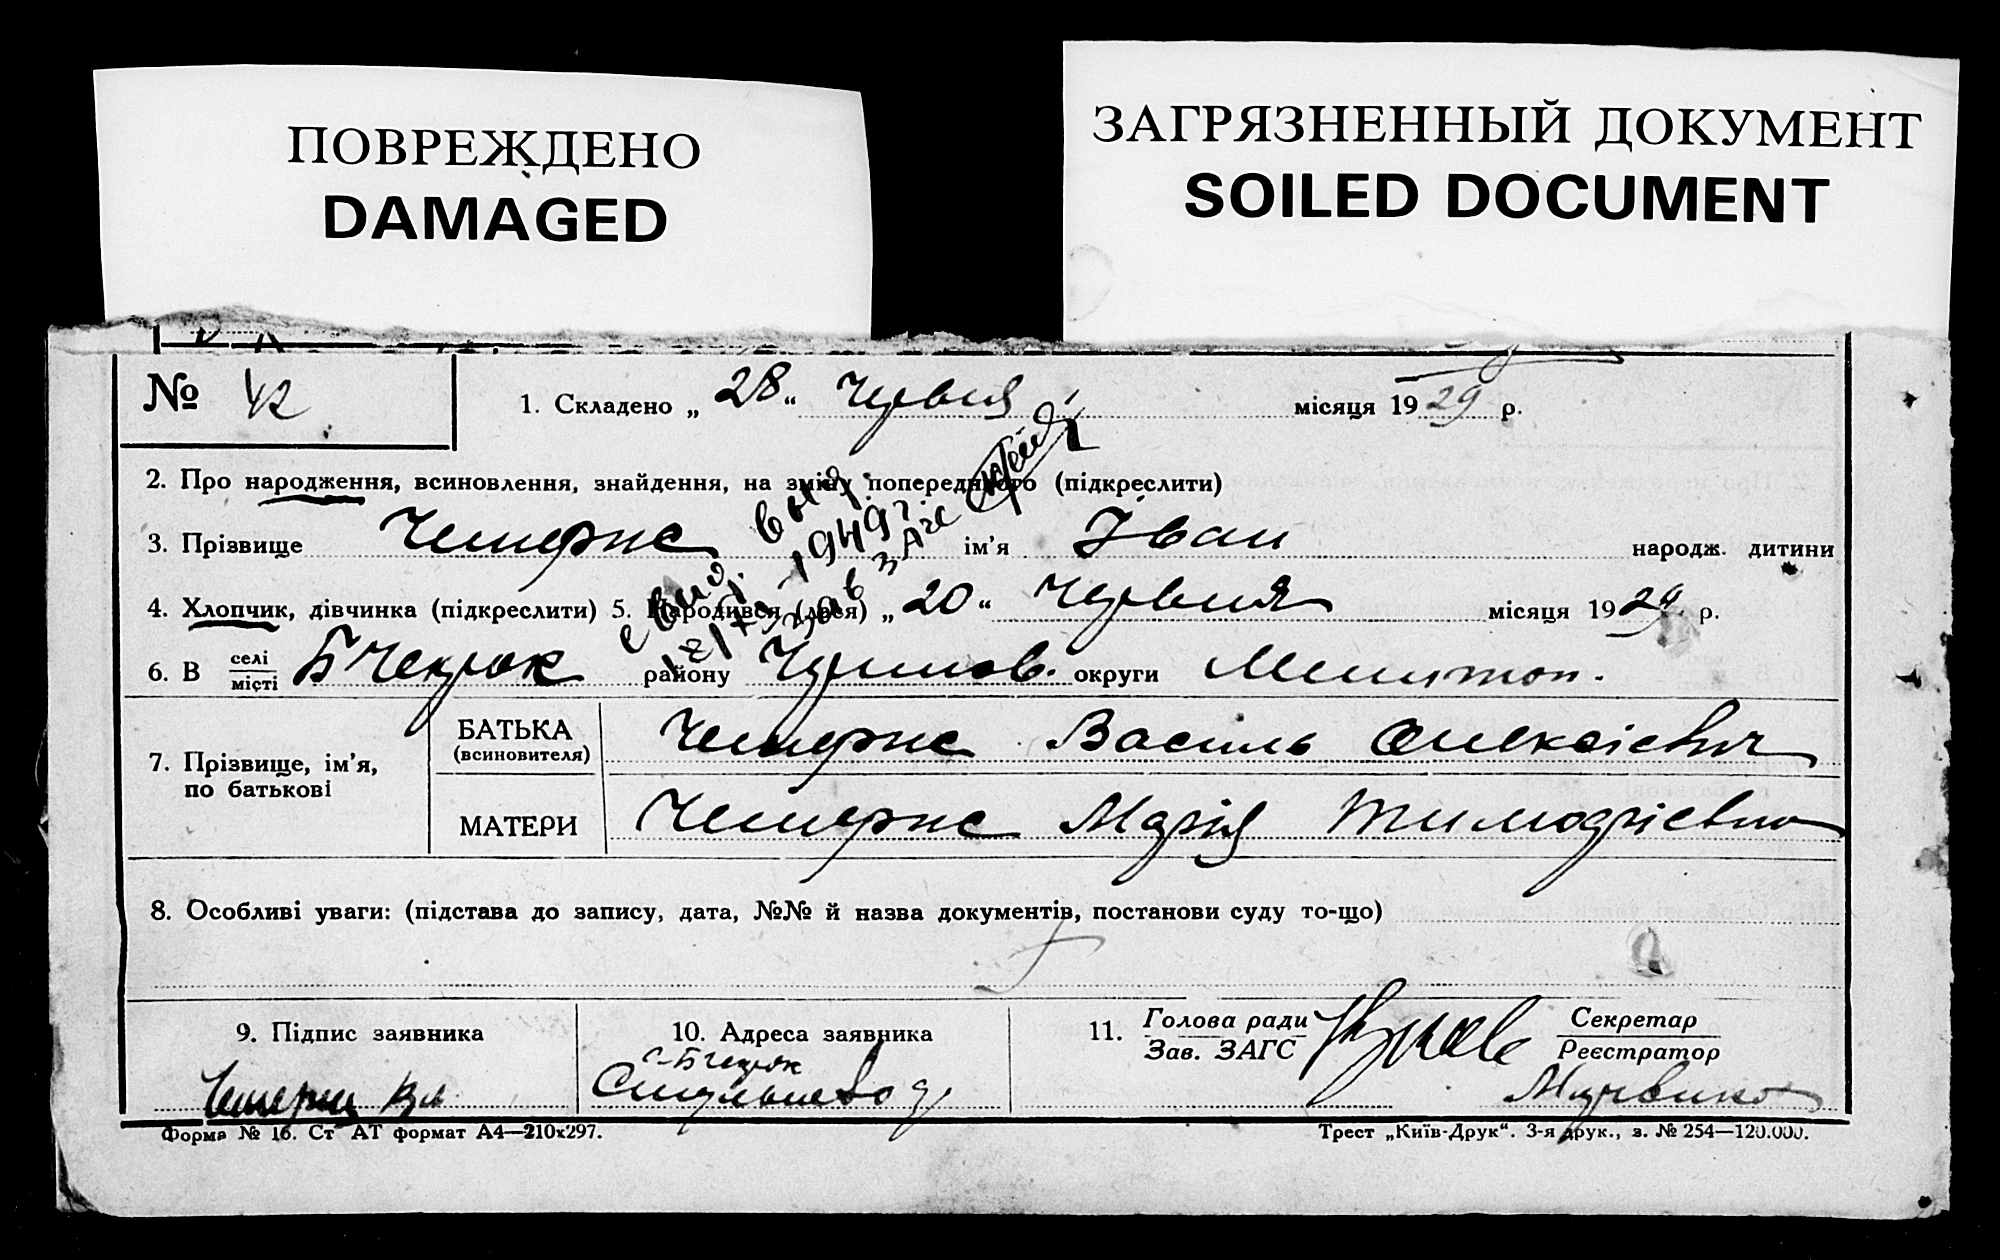 ПОВРЕЖДЕНО
DAMAGED
ЗАГРЯЗНЕННЫЙ ДОКУМЕНТ
SOILED DOCUMENT
№ 42
1. Складено „ 28 “ Червня місяця 19 29 р.
2. Про народження, всиновлення, знайдення, на зміну попереднього (підкреслити)
3. Прізвище Чемерис ім’я Іван народж. дитини
4. Хлопчик, дівчинка (підкреслити) 5. Народився (лася) „ 20 “ Червня місяця 19 29 р.
6. В селі місті району округи
7. Прізвище, ім’я, по батькові
БАТЬКА (всиновителя) Чемерис Василь Олексієвич
МАТЕРИ Чемерис Марія
8. Особливі уваги: (підстава до запису, дата, №№ й назва документів, постанови суду то-що)
9. Підпис заявника
Чемерис
10. Адреса заявника
11. Голова ради
Зав. ЗАГС
Секретар
Реєстратор
Форма № 16. Ст АТ формат А4—210х297.
Трест „Київ-Друк“. 3-я друк., з. № 254—120.000.